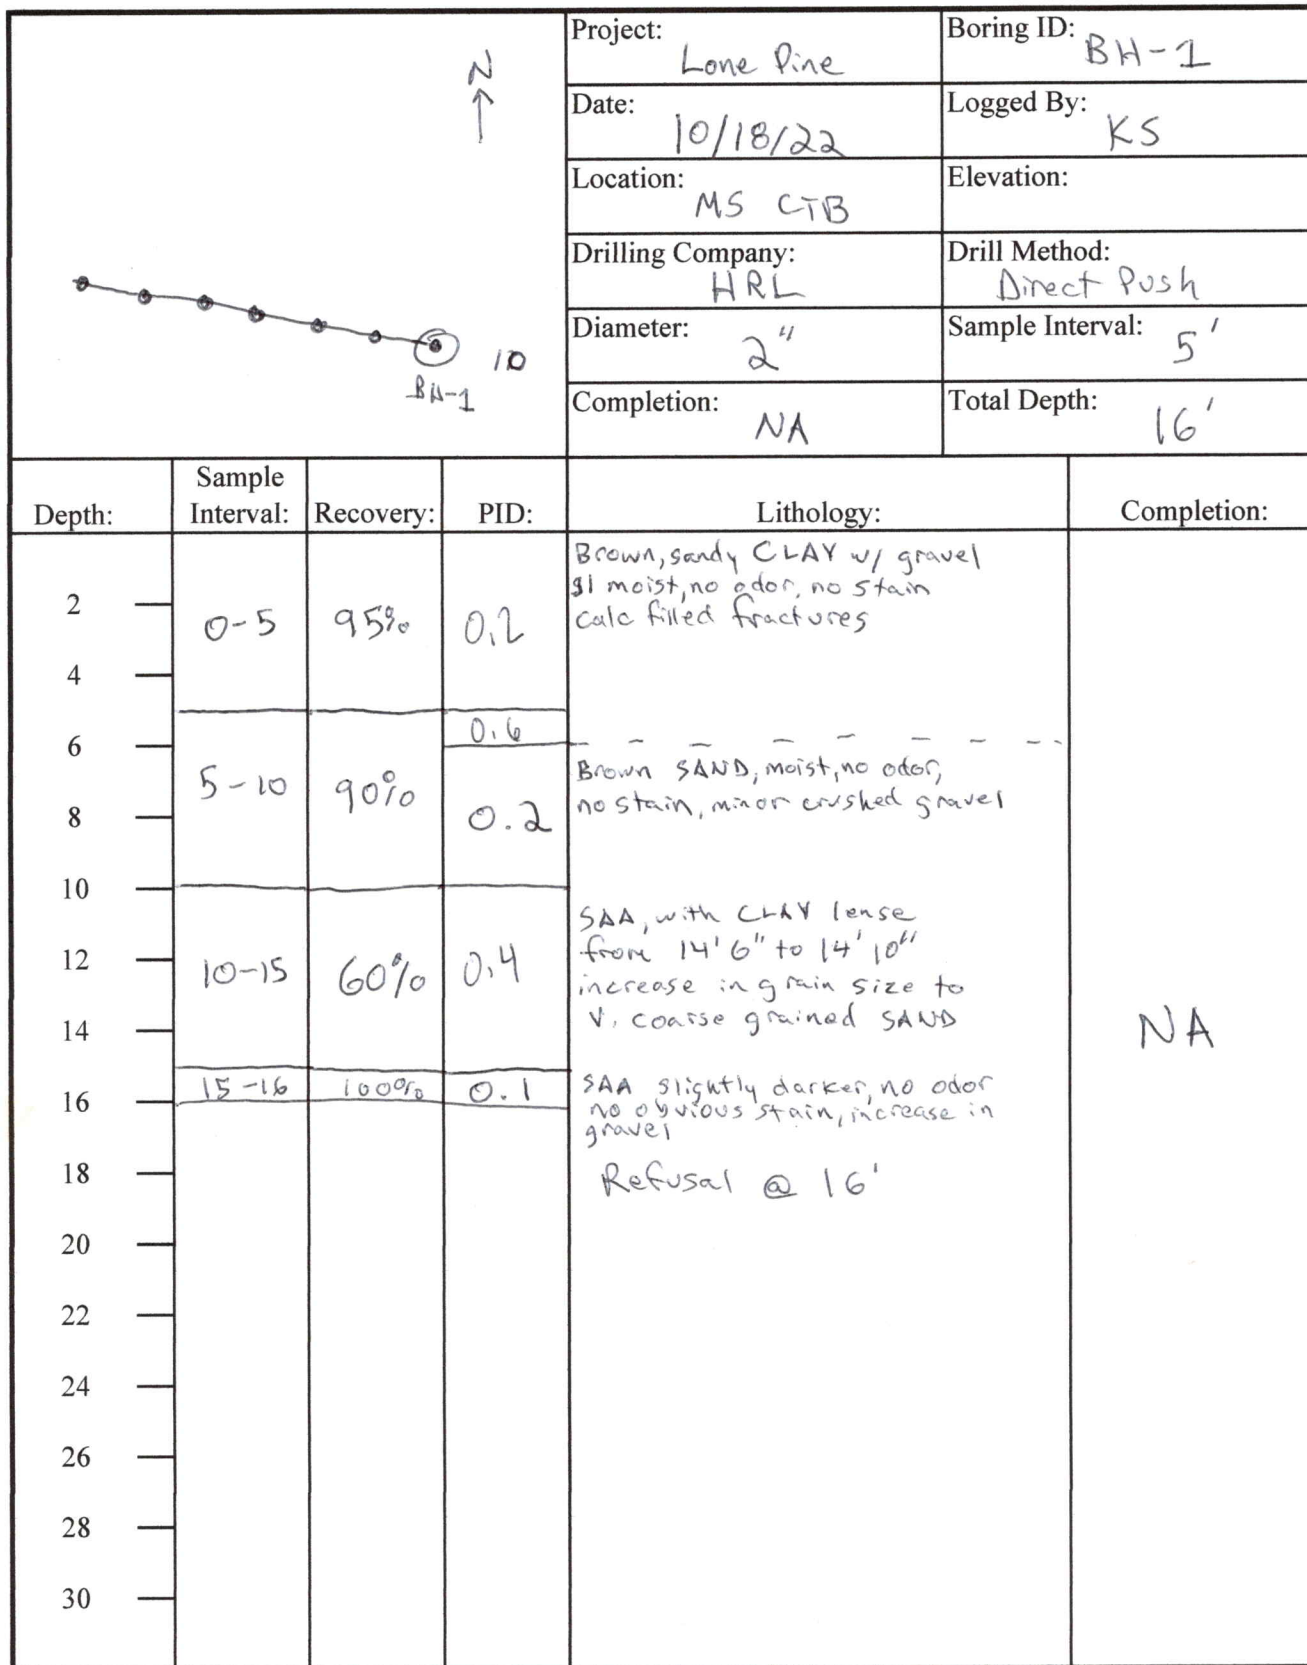 N
BH-1
10
Project: Lone Pine
Boring ID: BH-1
Date: 10/18/22
Logged By: KS
Location: MS CTB
Elevation:
Drilling Company: HRL
Drill Method: Direct Push
Diameter: 2"
Sample Interval: 5'
Completion: NA
Total Depth: 16'
Depth:
Sample Interval:
Recovery:
PID:
Lithology:
Completion:
Brown, sandy CLAY w/ gravel
sl moist, no odor, no stain
calc filled fractures
2
0-5 95% 0.2
4
0.6
6
Brown SAND, moist, no odor,
no stain, minor crushed gravel
5-10 90% 0.2
8
10
SAA, with CLAY lense
from 14'6" to 14'10"
increase in grain size to
v. coarse grained SAND
12
10-15 60% 0.4
14
NA
15-16 100% 0.1
16
SAA slightly darker, no odor
no obvious stain, increase in
gravel
18
Refusal @ 16'
20
22
24
26
28
30